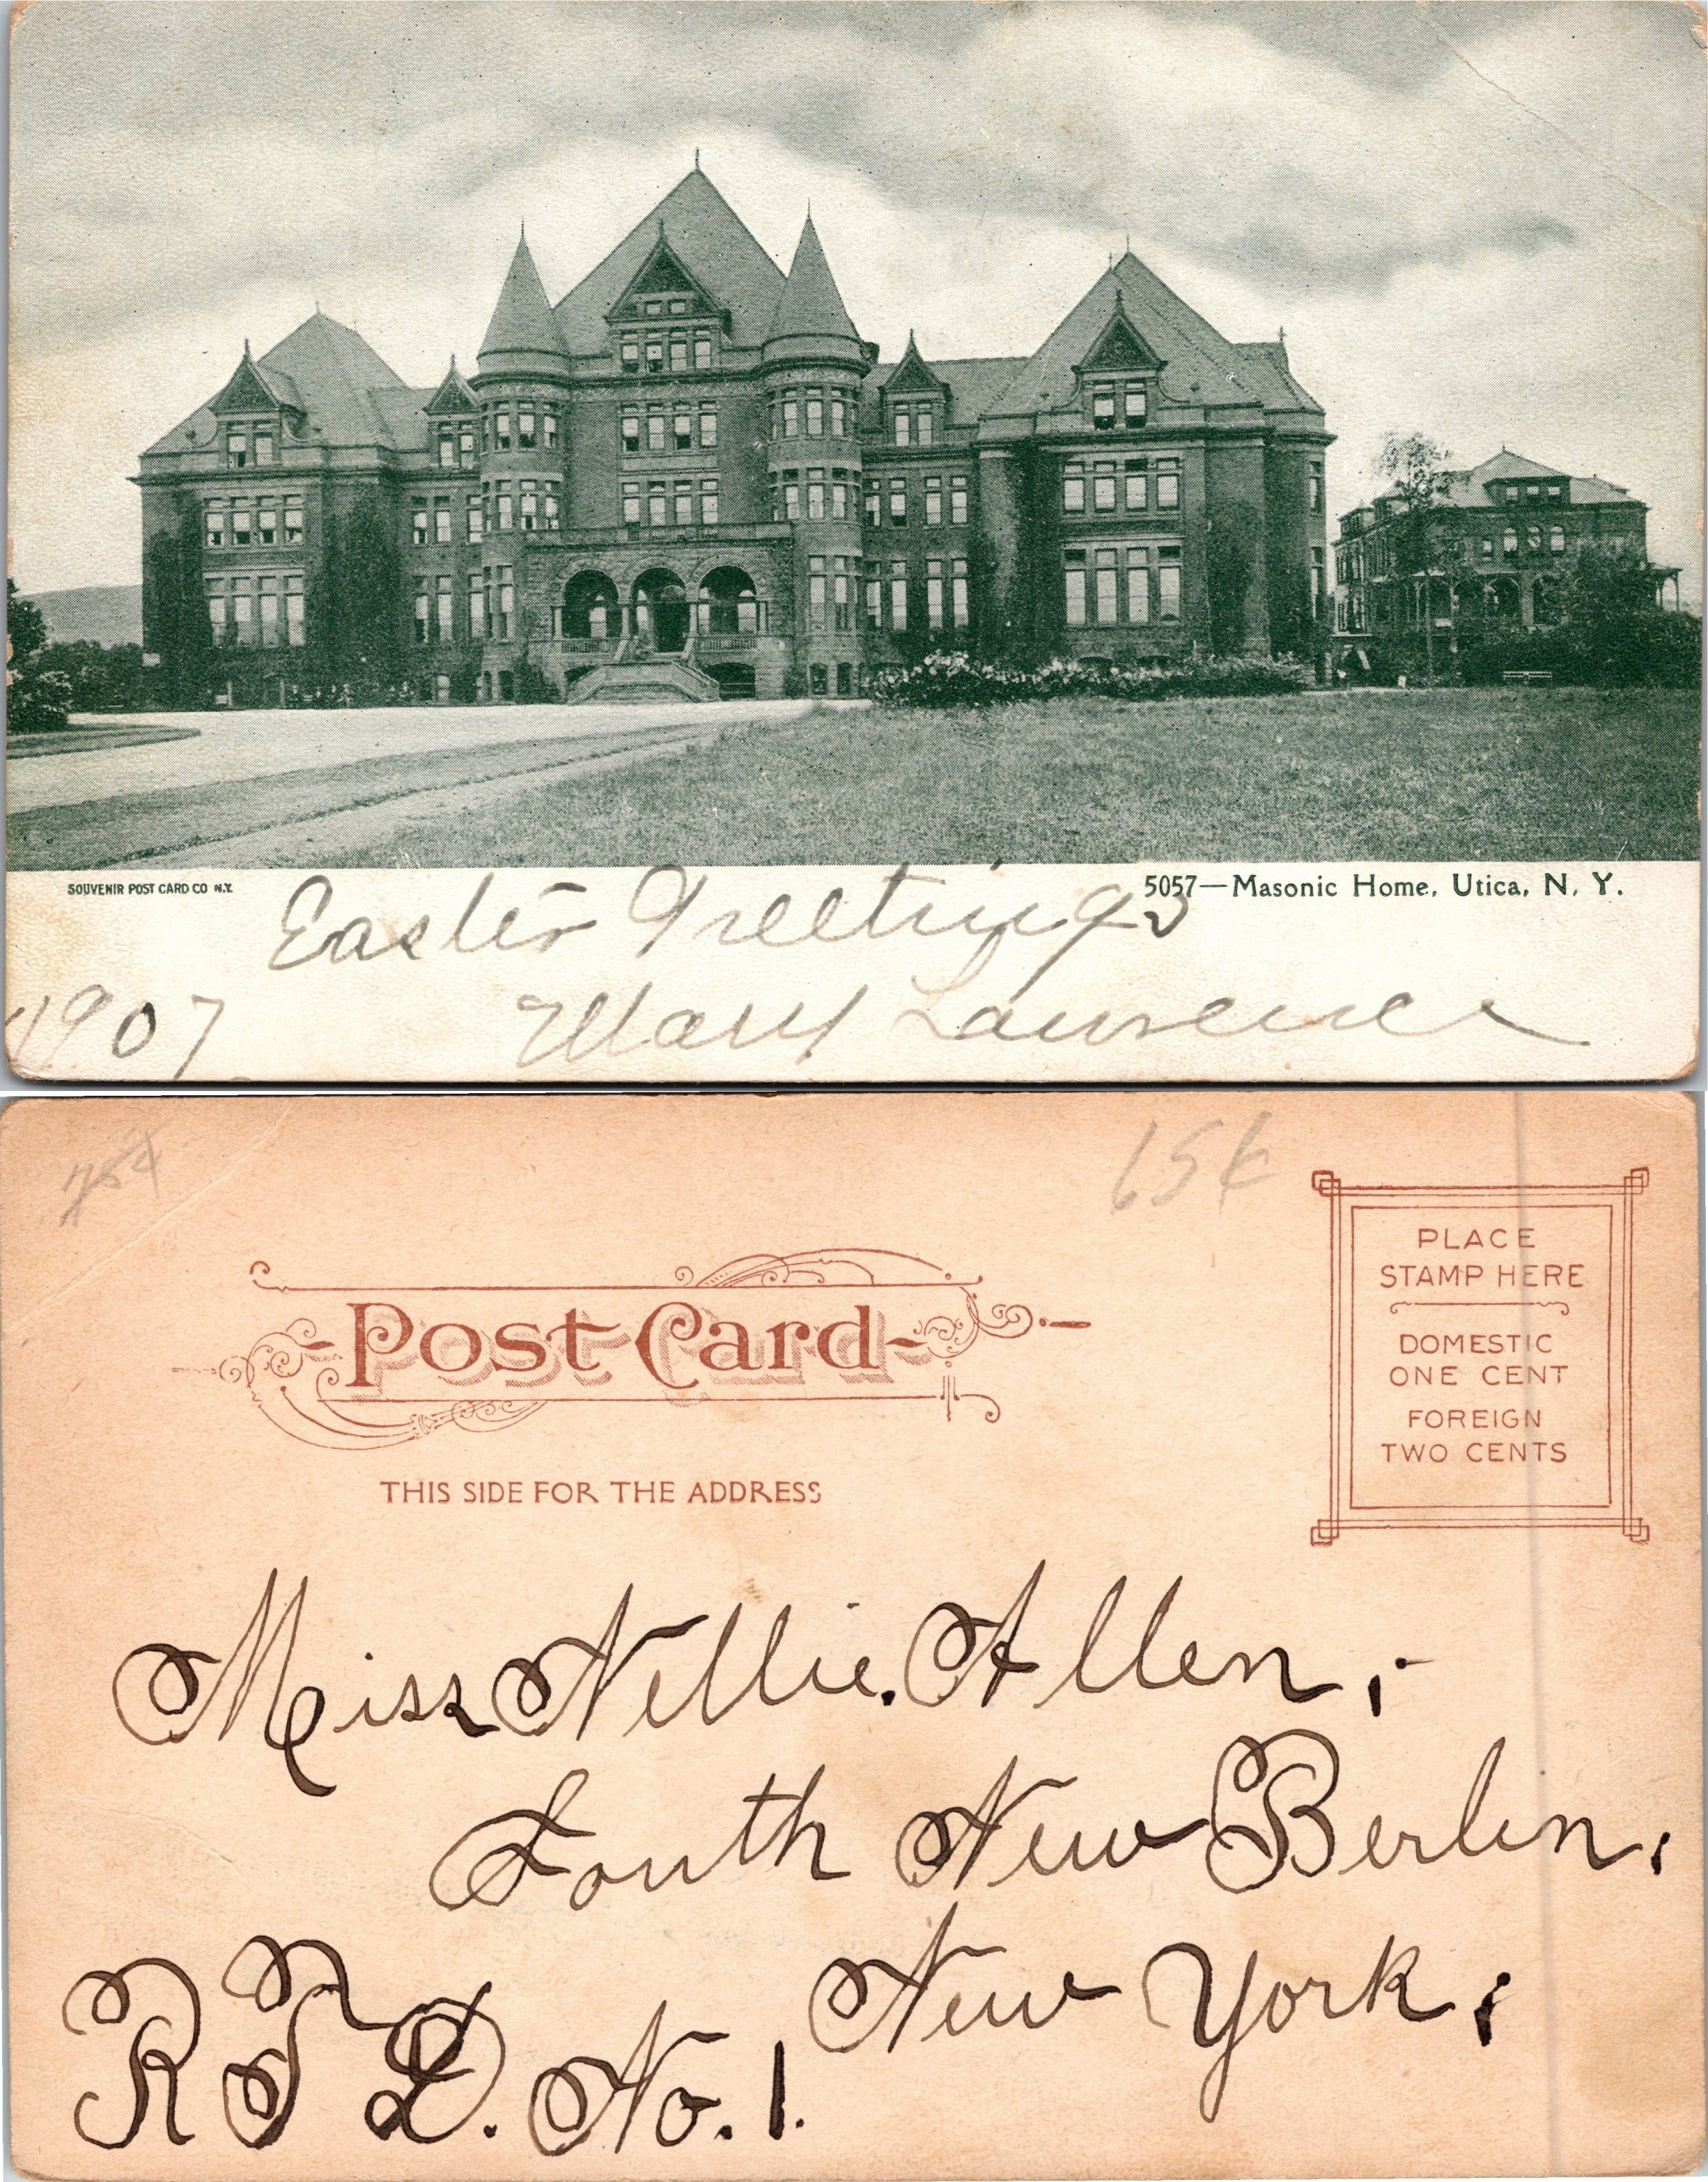 SOUVENIR POST CARD CO N.Y.
5057—Masonic Home, Utica, N. Y.
Easter Greetings
1907
Mary Lawrence
75¢
65¢
PLACE
STAMP HERE
DOMESTIC
ONE CENT
FOREIGN
TWO CENTS
Post Card
THIS SIDE FOR THE ADDRESS
Miss Nellie. Allen,
South New Berlin,
New York;
R F D. No. 1.